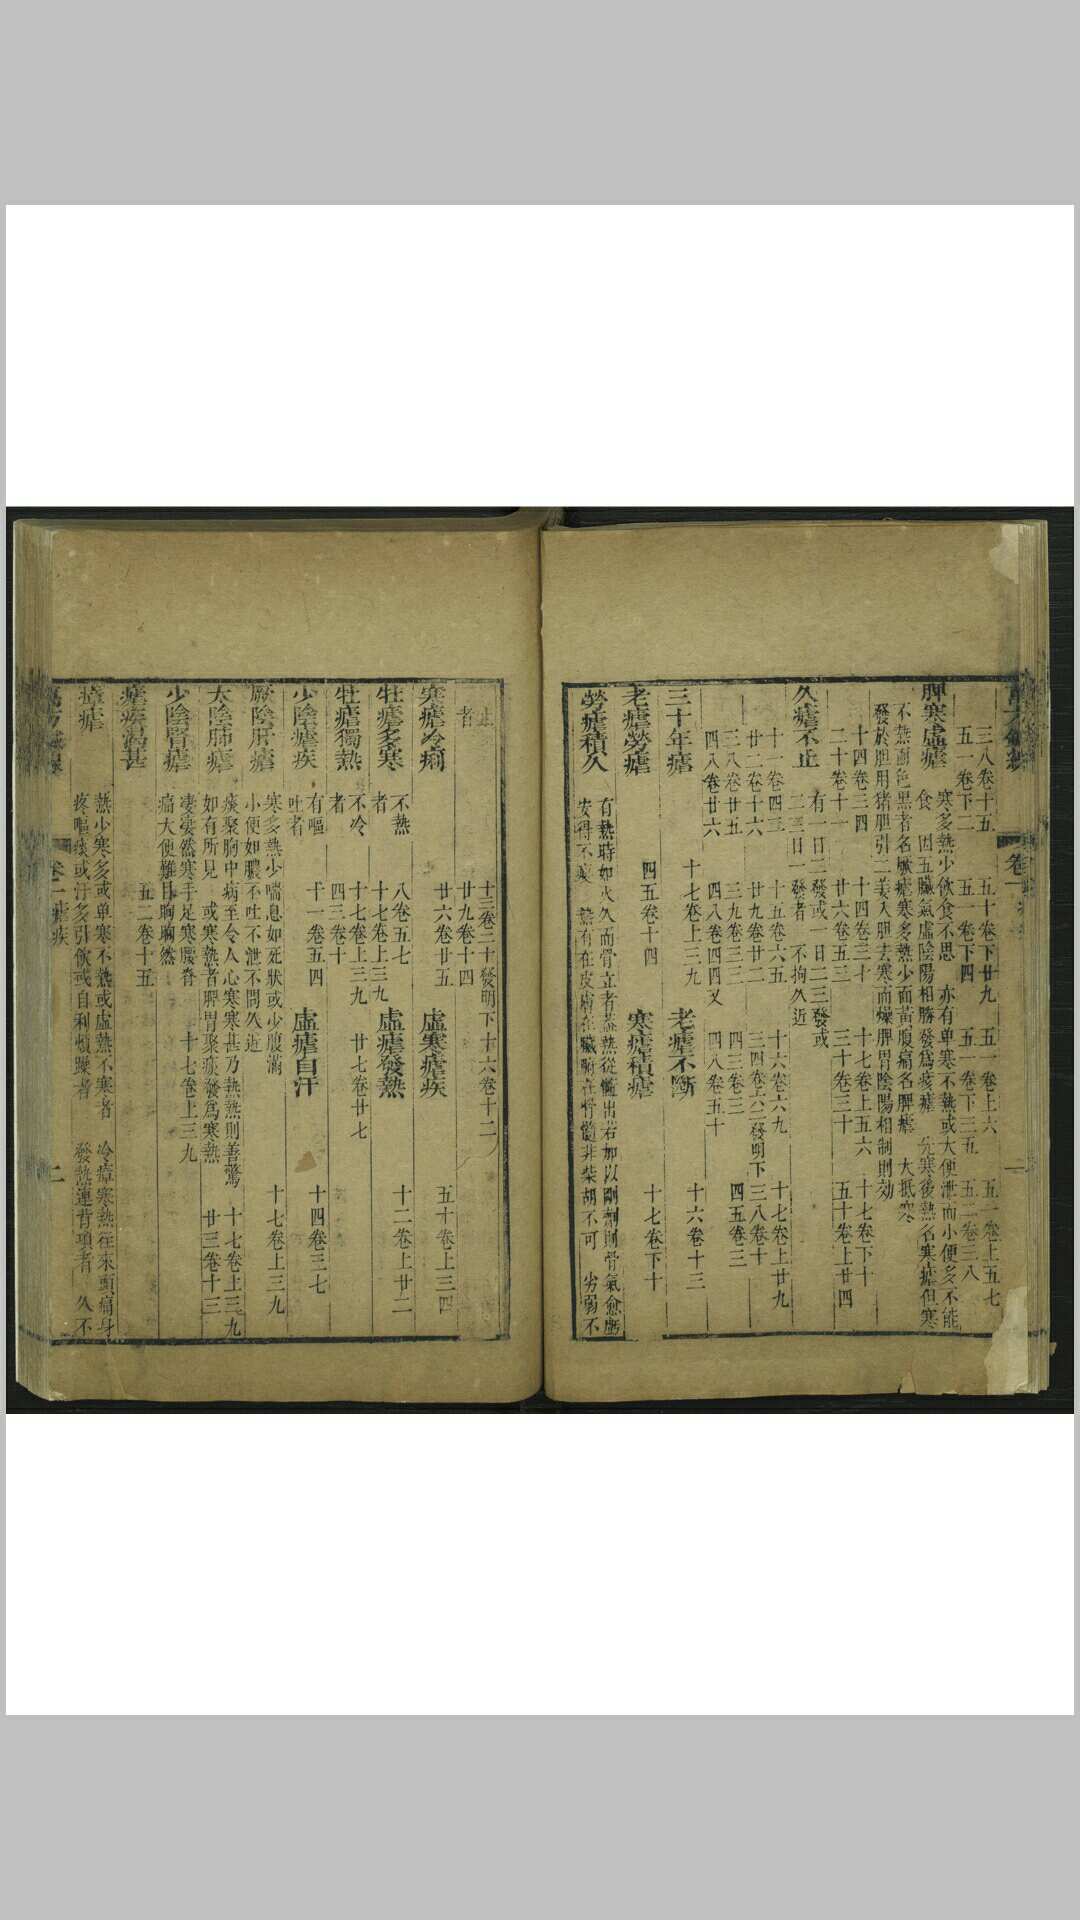 三八卷十五 五十卷下廿九 五一卷上六 五一卷上五七
五一卷下二 五一卷下四 五一卷下三五 五二卷三八
脾寒虛瘧
寒多熱少飲食不思 亦有单寒不熱或大便泄而小便多不能
食 因五臟氣虛陰陽相勝發爲痎瘧 先寒後熱名寒瘧但寒
不熱面色黑者名厥瘧寒多熱少面黃腹痛名脾瘧 大抵寒
發於胆用猪胆引二姜入胆去寒而燥脾胃陰陽相制則効
十四卷三四 十四卷三十 十七卷上五六 十七卷下十
二十卷十一 廿六卷五三 三十卷三十 五十卷上廿四
久瘧不止
有一日二發或一日二三發或
二三日一發者 不拘久近
十一卷四三 十五卷六五 十六卷六九 十七卷上廿九
廿二卷十六 廿九卷廿二 三四卷六二發明下三八卷十
三八卷廿五 三九卷三三 四三卷三 四五卷三
四八卷廿六 四八卷四四又 四八卷五十
三十年瘧 十七卷上三九 老瘧不斷 十六卷十三
老瘧勞瘧 四五卷十四 寒瘧積瘧 十七卷下十
勞瘧積久
有熱時如火久而骨立者蓋熱從髓出若加以剛劑則骨氣愈虧
安得不 熱有在皮膚在臟腑在骨髓非柴胡不可 劣弱不
止
者
十三卷三十發明下十六卷十二
廿九卷十四
寒瘧冷痢 廿六卷廿五 虛寒瘧疾 五十卷上三四
牡瘧多寒
不熱
者
八卷五七
十七卷上三九
虛瘧發熱 十二卷上廿二
牡瘧獨熱
不冷
者
十七卷上三九 廿七卷廿七
四三卷十
少陰瘧疾
有嘔
吐者
十一卷五四 虛瘧自汗 十四卷三七
厥陰肝瘧
寒多熱少喘息如死狀或少腹滿
小便如膿不吐不泄不問久近
十七卷上三九
太陰肺瘧
痰聚胸中病至令人心寒寒甚乃熱熱則善驚
如有所見 或寒熱者脾胃聚痰發爲寒熱
十七卷上三九
廿三卷十三
少陰腎瘧
凄凄然寒手足寒腰脊
痛大便難目眴眴然
十七卷上三九
瘧疾渴甚 五二卷十五
瘴瘧
熱少寒多或单寒不熱或虛熱不寒者 冷瘴寒熱往來頭痛身
疼嘔痰或汗多引飲或自利煩躁者 發熱連背項者 久不
卷一 瘧疾 二